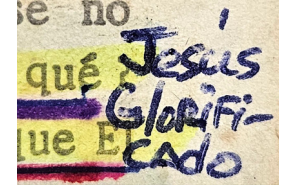 se no
qué
que El
Jesús
Glorifi-
cado